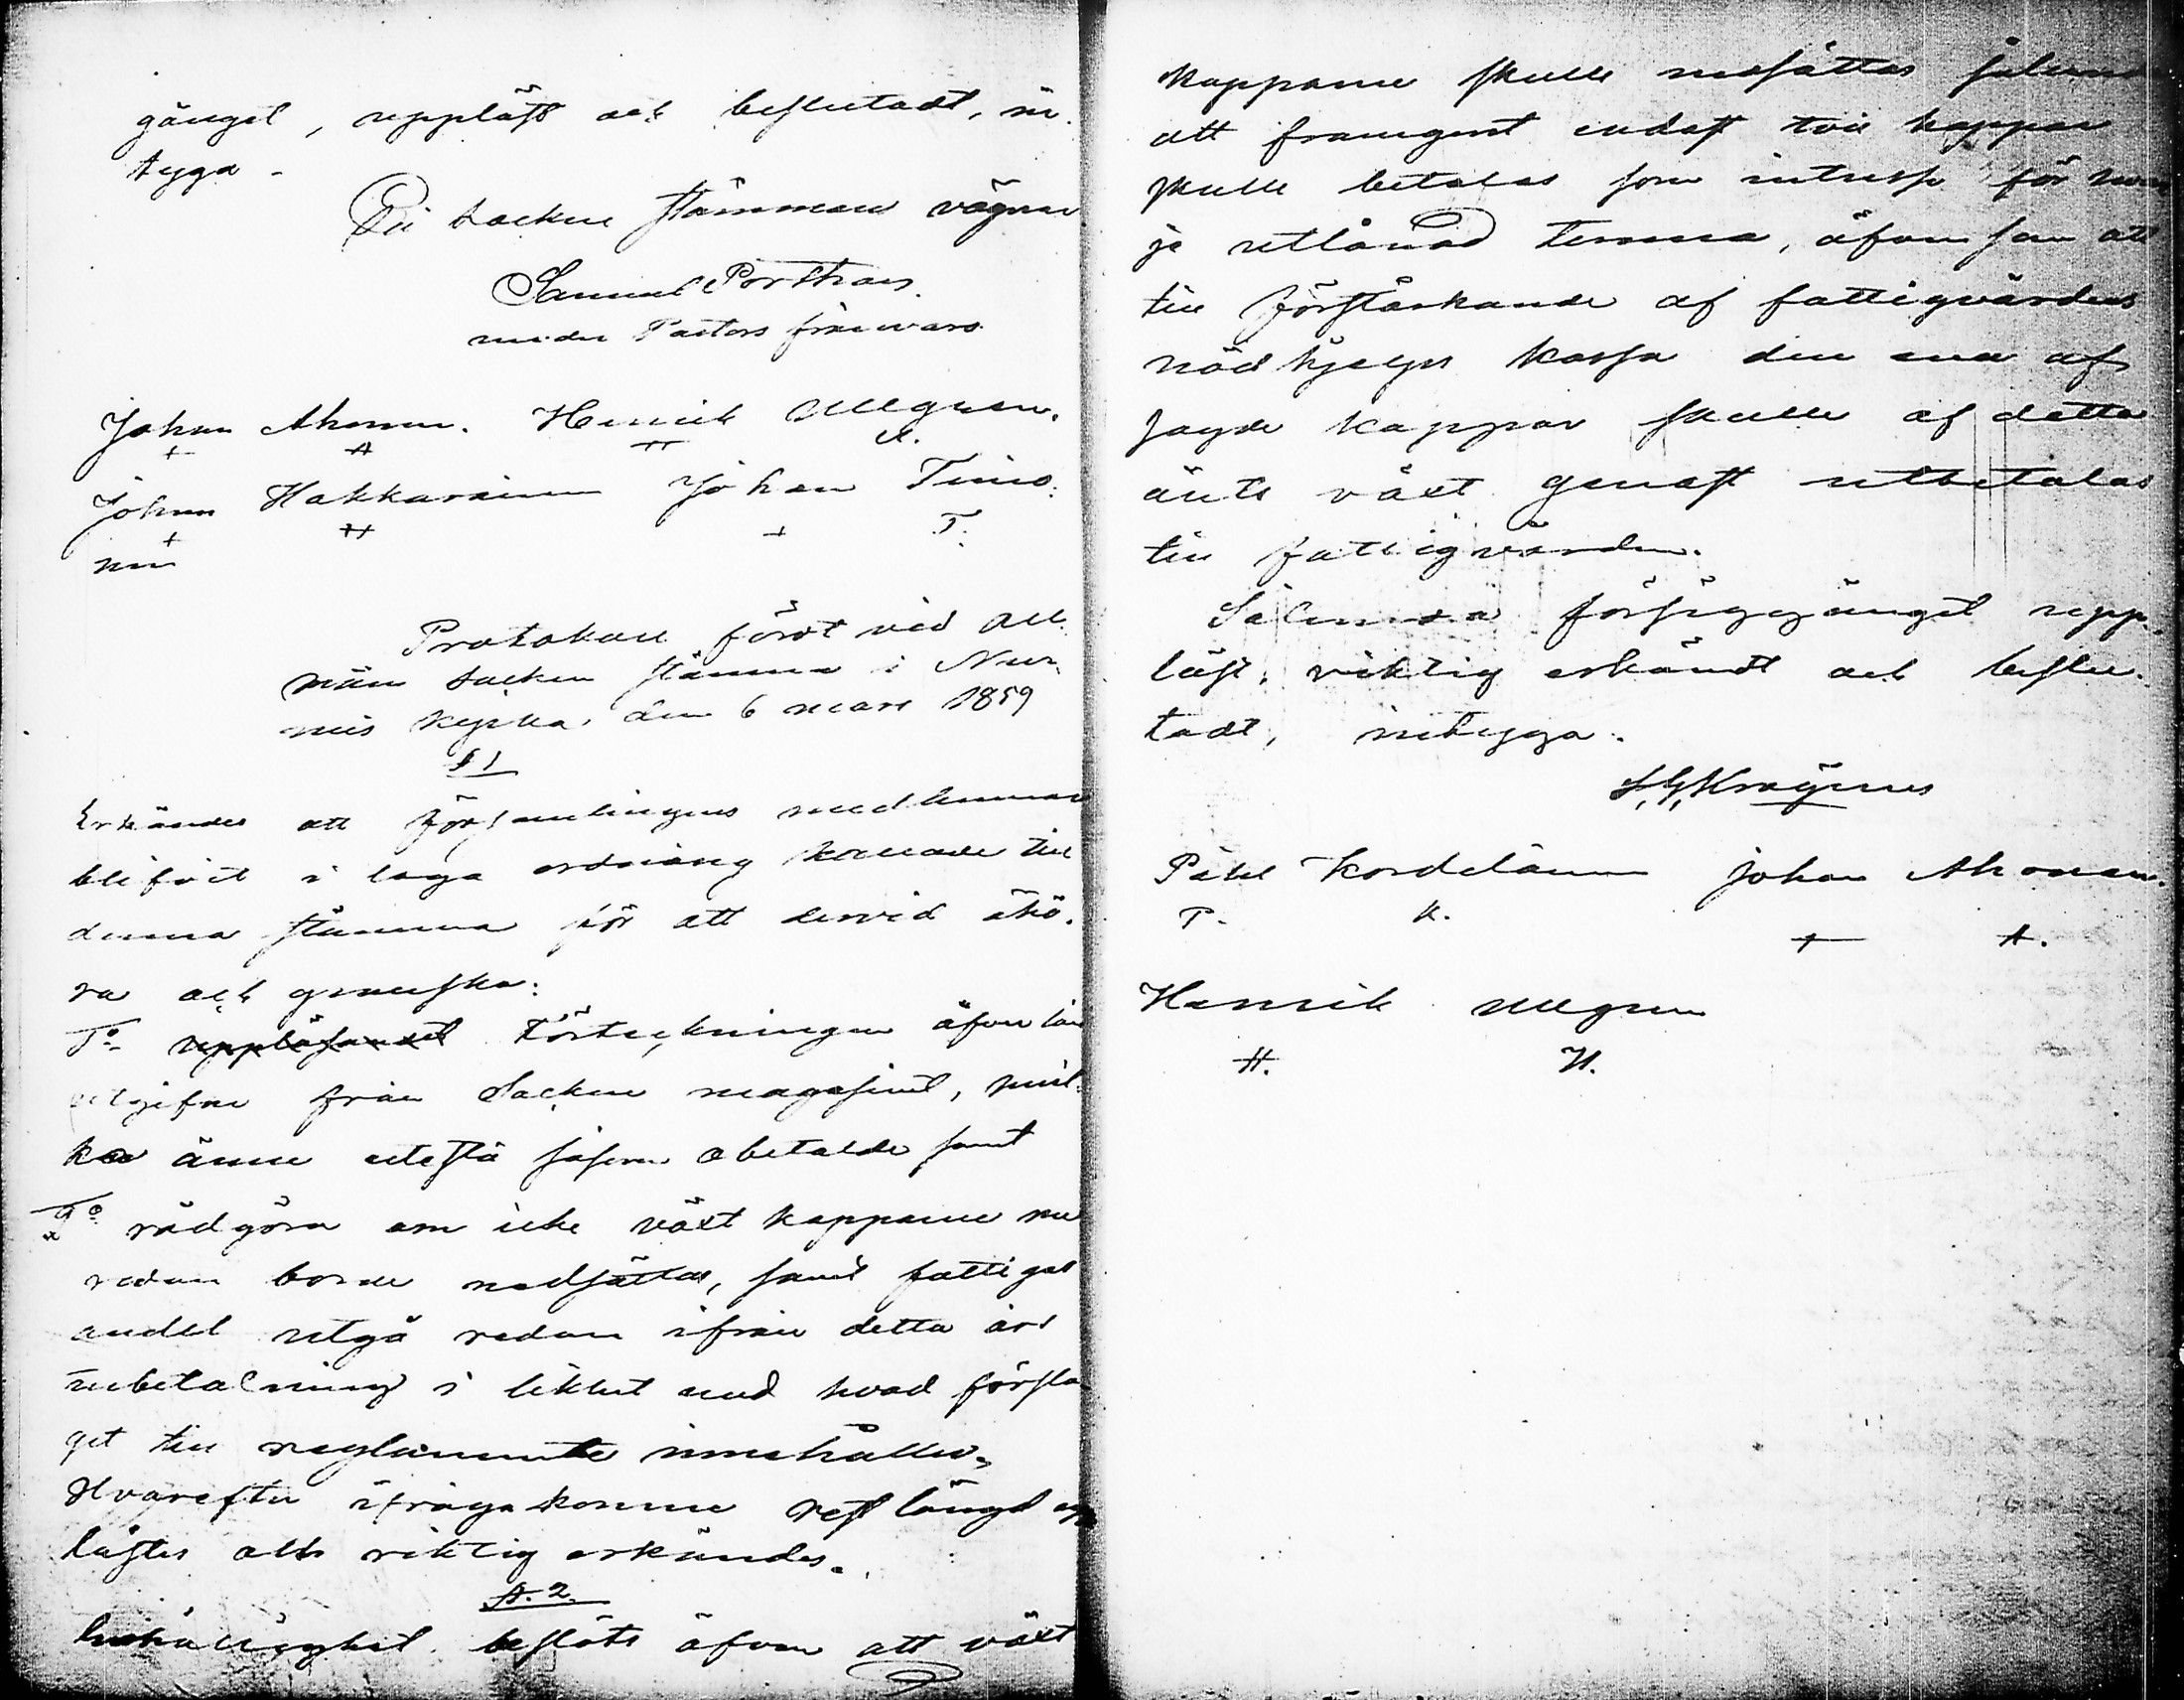 gånget, uppläst och beslutadt, in-
tyga.
På Sockne stämmans vägnar
Samuel Porthan
under Pastors frånvaro.
Johan Ahonen. Henrik Ullgren.
+ A H U.
Johan Hakkarainen Johan Timo-
+ H + T.
nen
Protokoll fördt vid All-
män Socken stämma i Nur-
mis kyrka, den 6 mars 1859
§ 1
Erkändes att Församlingens medlemmar
blifvit i laga ordning kallade till
denna stämma för att dervid åhö-
ra och granska:
1o uppläsandet Förteckningen öfver lån
utgifne från Sockne magasinet, hvil-
ka ännu utestå såsom obetalde samt
2o rådgöra om icke växt kapparne nu
redan borde nedsättas, samt fattigas
andel utgå redan ifrån detta års
inbetalning i likhet med hvad försla-
get till reglemente innehåller,
Hvarefter ifrågakomne restlängd upp
lästes och riktig erkändes.
§. 2.
beslöts äfven att växt
kapparne skulle nedsättas sålunda
att framgent endast två kappar
skulle betalas som intresse för hvar
je utlånad tunna, äfvensom att
till Förstärkande af fattigvårdens
nödhjelps kassa den ena af
sagde kappar skulle af detta
årets växt genast utbetalas
till fattigvården.
Sålunda förehafvet upp-
läst, riktig erkändt och beslu-
tadt, intyga.
Påhl Kordelainen Johan Ahonen.
P. K. + A.
Henrik Ullgren
H. U.